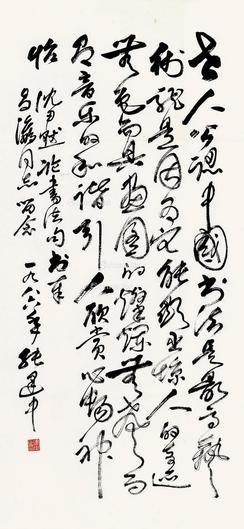 世人公認中國書法是最高藝
術就是因為它能顯出驚人的奇迹
無色而具畫圖的燦爛無聲而
有音乐的和谐引人欣赏心暢神
怡 沈尹默論書法句书奉
同志留念 一九八六年 張建中